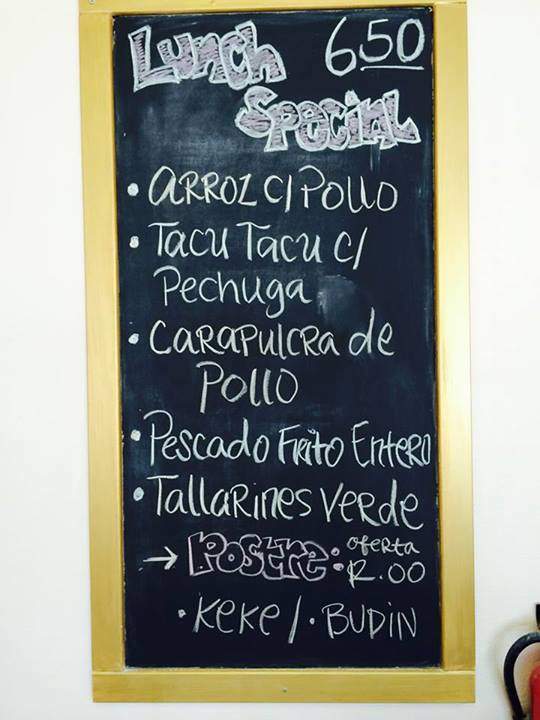 Lunch 6.50
Special
• ARROZ C/ POLLO
• TACU TACU C/
Pechuga
• CARAPULCRA de
POLLO
• Pescado Frito Entero
• Tallarines Verde
→ Postre: oferta
2.00
• KeKe / • BUDIN